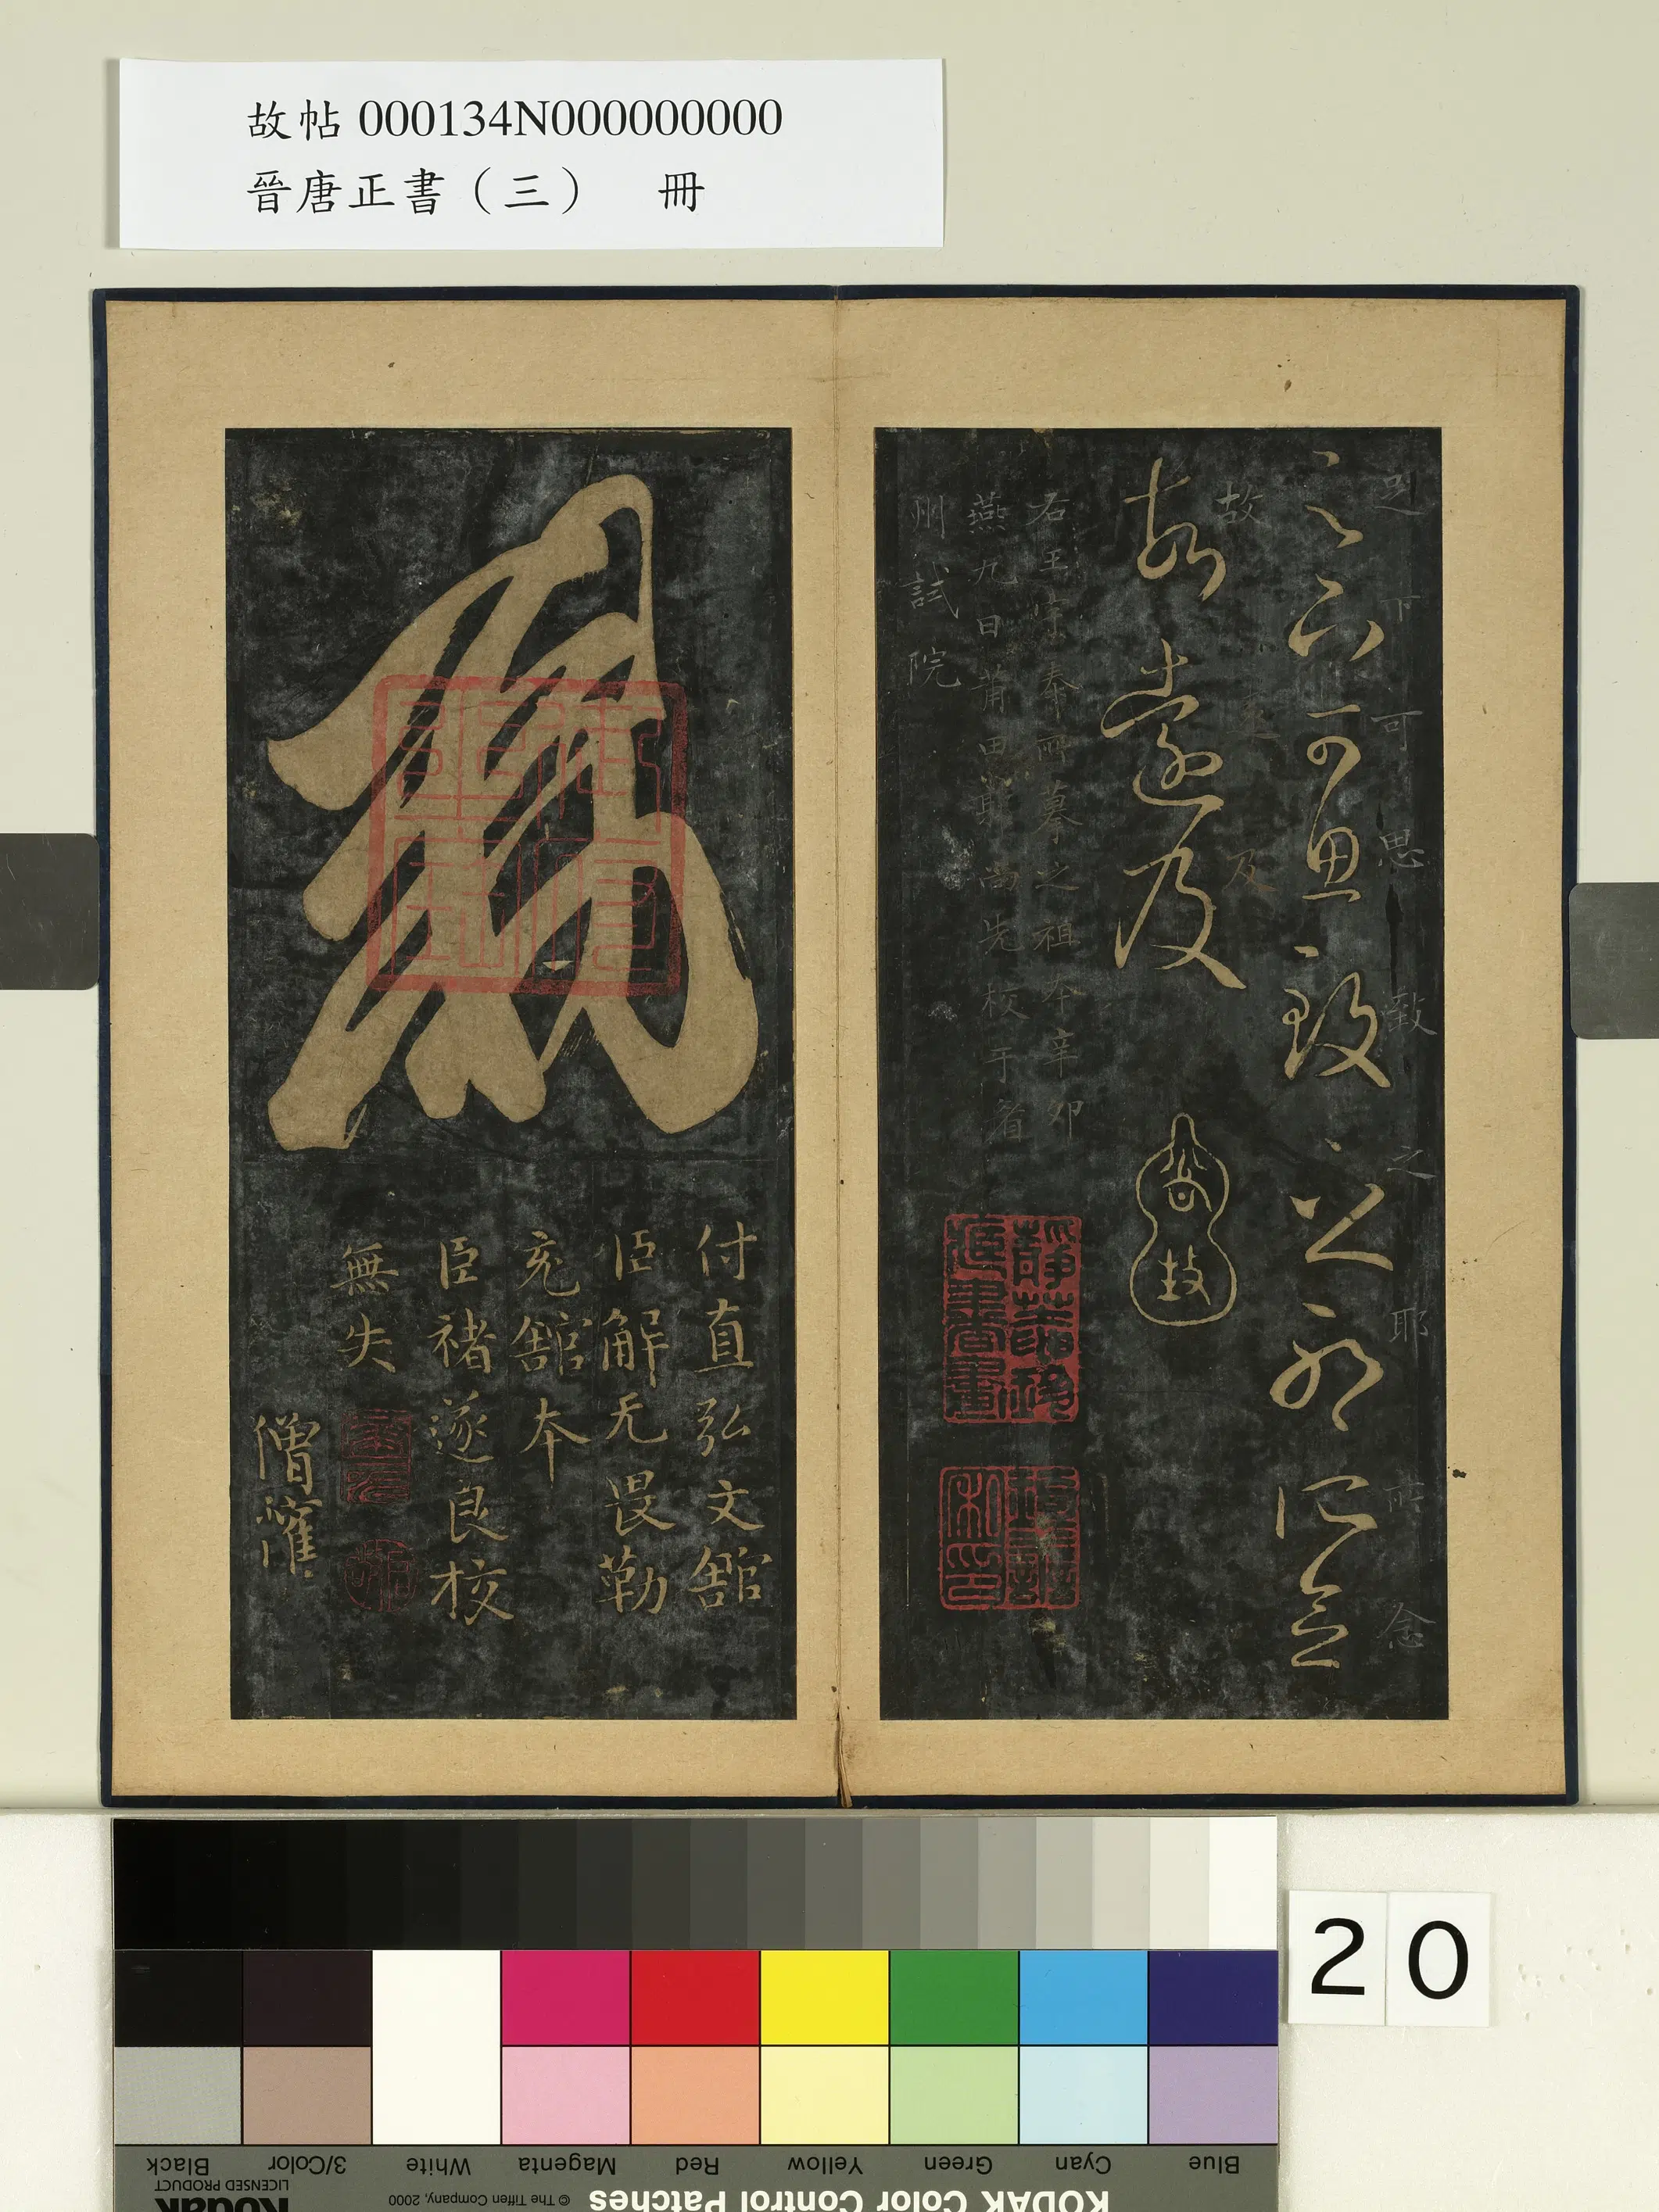 故帖 000134N000000000
晉唐正書（三） 冊
足下可思致之耶所念
足下可思致之耶所念
故遠及
故遠及
右王
祖本辛卯
燕九日莆田鄭尚先校于省
州試院
付直弘文館
臣解无畏勒
充館本
臣褚遂良校
無失
僧權
20
Blue
Cyan
Green
Yellow
Red
Magenta
White
3/Color
Black
KODAK Color Control Patches
© The Tiffen Company, 2000
Kodak
LICENSED PRODUCT